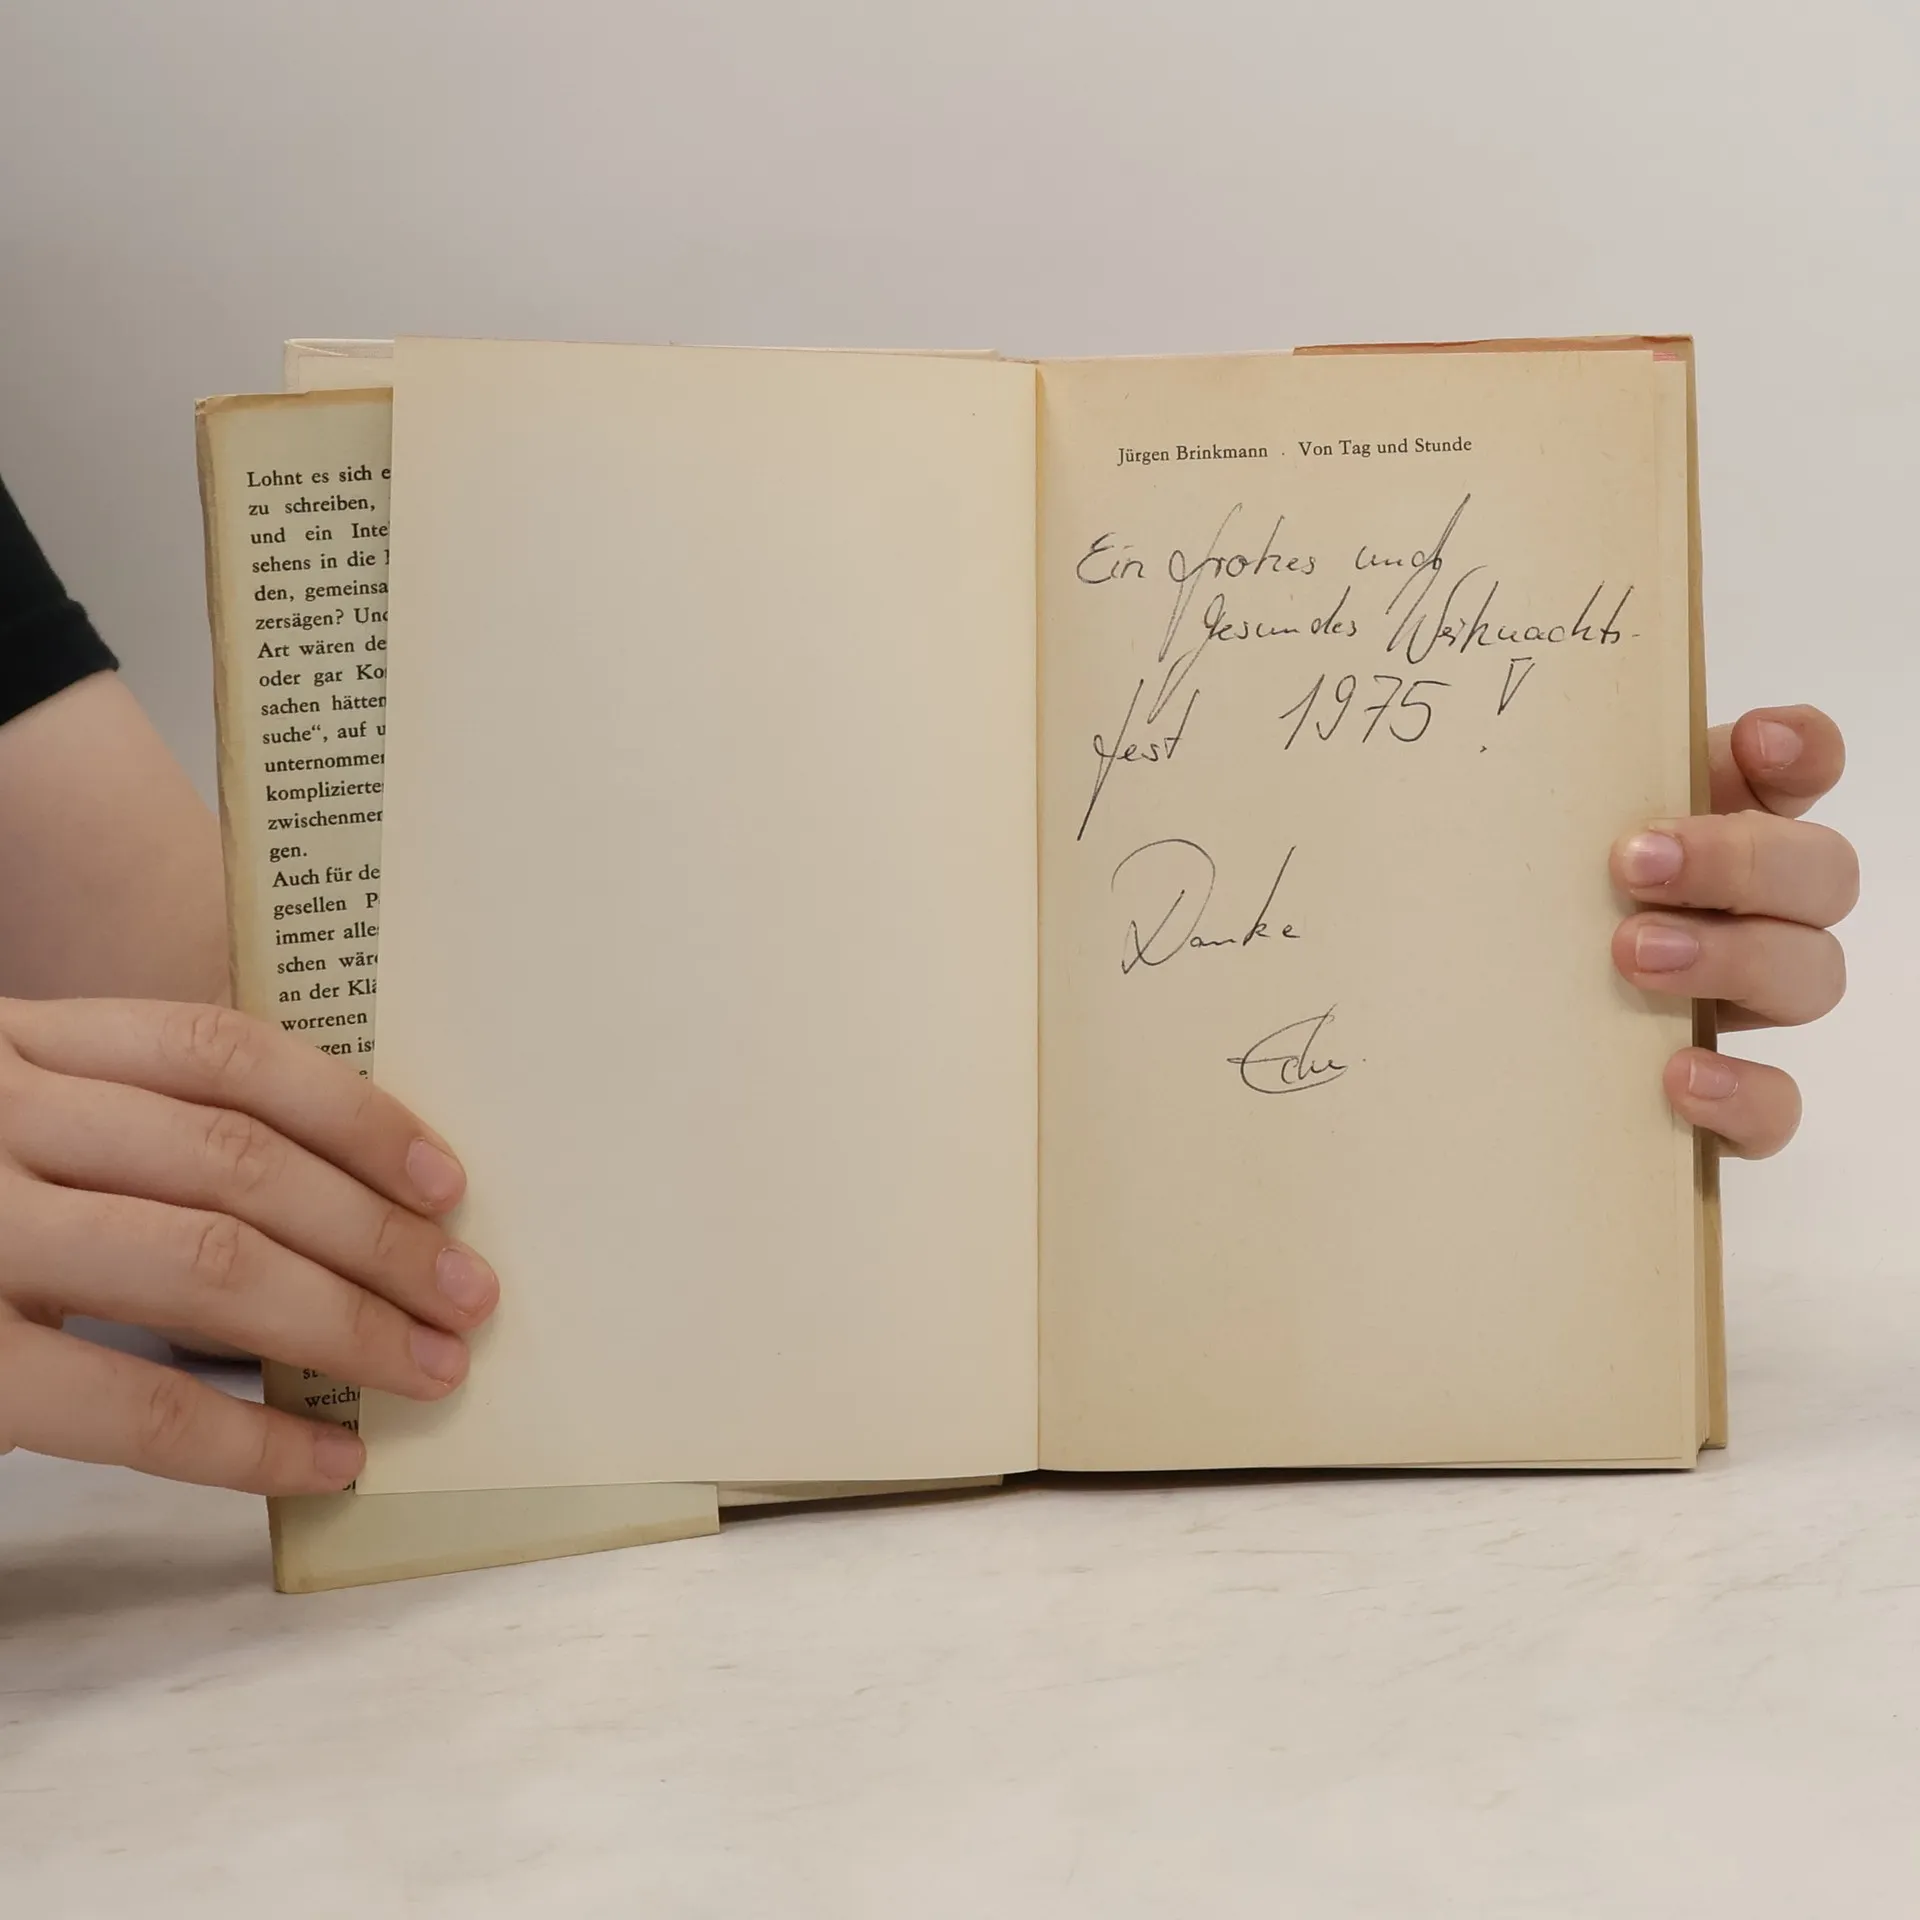 Lohnt es sich e
zu schreiben,
und ein Inte
sehens in die
den, gemeinsa
zersägen? Und
Art wären de
oder gar Ko
sachen hätten
suche“, auf u
unternommen
komplizierte
zwischenmen
gen.
Auch für de
gesellen P
immer alle
schen wäre
an der Klä
worrenen
gen ist
weich
Jürgen Brinkmann . Von Tag und Stunde
Ein frohes und
gesundes Weihnachts-
fest 1975 !
Danke